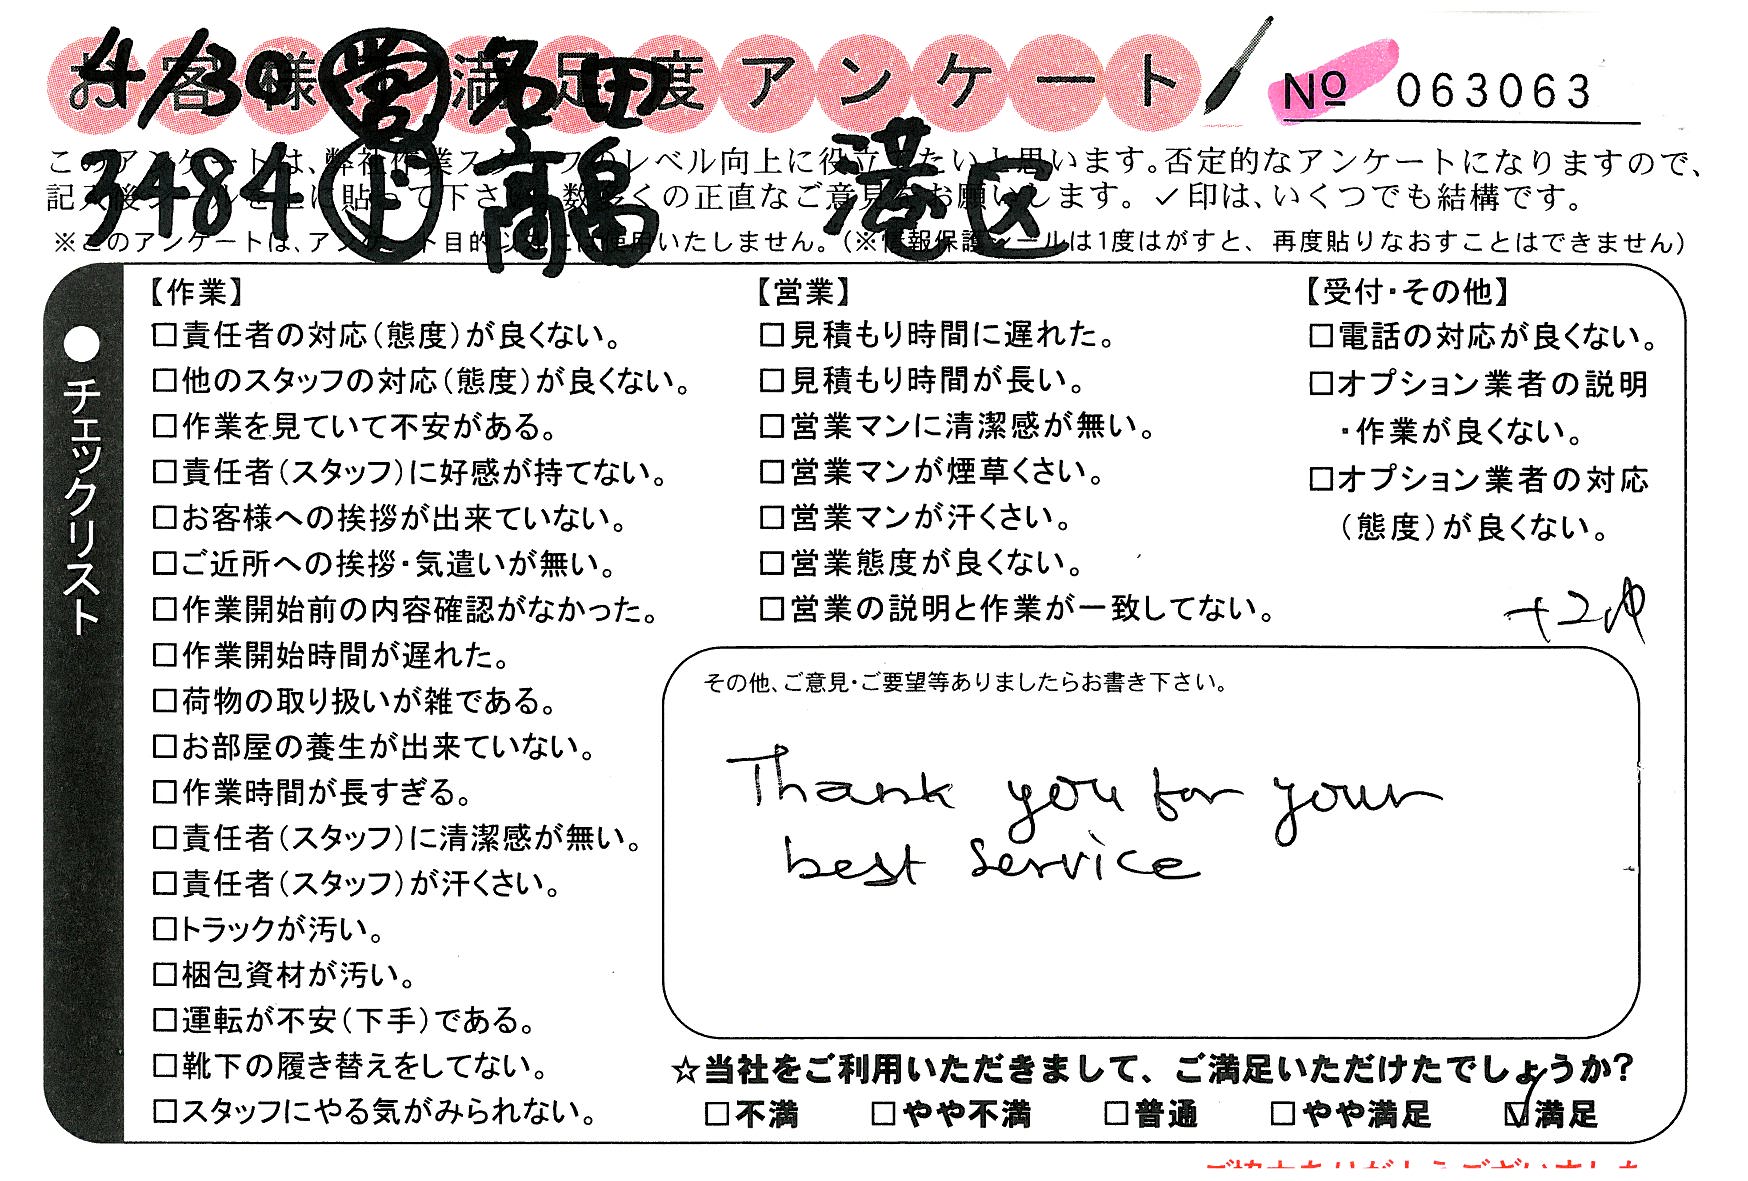 お客様 満足度アンケート
4/30 営 名田
№ 063063
3484 ド 高畠 港区
このアンケートは、弊社作業スタッフのレベル向上に役立てたいと思います。否定的なアンケートになりますので、
記入後シールを上に貼って下さい。数多くの正直なご意見をお願いします。✓印は、いくつでも結構です。
※このアンケートは、アンケート目的以外には使用いたしません。(※情報保護シールは1度はがすと、再度貼りなおすことはできません)
●チェックリスト
【作業】
□責任者の対応(態度)が良くない。
□他のスタッフの対応(態度)が良くない。
□作業を見ていて不安がある。
□責任者(スタッフ)に好感が持てない。
□お客様への挨拶が出来ていない。
□ご近所への挨拶・気遣いが無い。
□作業開始前の内容確認がなかった。
□作業開始時間が遅れた。
□荷物の取り扱いが雑である。
□お部屋の養生が出来ていない。
□作業時間が長すぎる。
□責任者(スタッフ)に清潔感が無い。
□責任者(スタッフ)が汗くさい。
□トラックが汚い。
□梱包資材が汚い。
□運転が不安(下手)である。
□靴下の履き替えをしてない。
□スタッフにやる気がみられない。
【営業】
□見積もり時間に遅れた。
□見積もり時間が長い。
□営業マンに清潔感が無い。
□営業マンが煙草くさい。
□営業マンが汗くさい。
□営業態度が良くない。
□営業の説明と作業が一致してない。
【受付・その他】
□電話の対応が良くない。
□オプション業者の説明
・作業が良くない。
□オプション業者の対応
(態度)が良くない。
その他、ご意見・ご要望等ありましたらお書き下さい。
Thank you for your
best service
☆当社をご利用いただきまして、ご満足いただけたでしょうか?
□不満 □やや不満 □普通 □やや満足 ☑満足
ご協力ありがとうございました